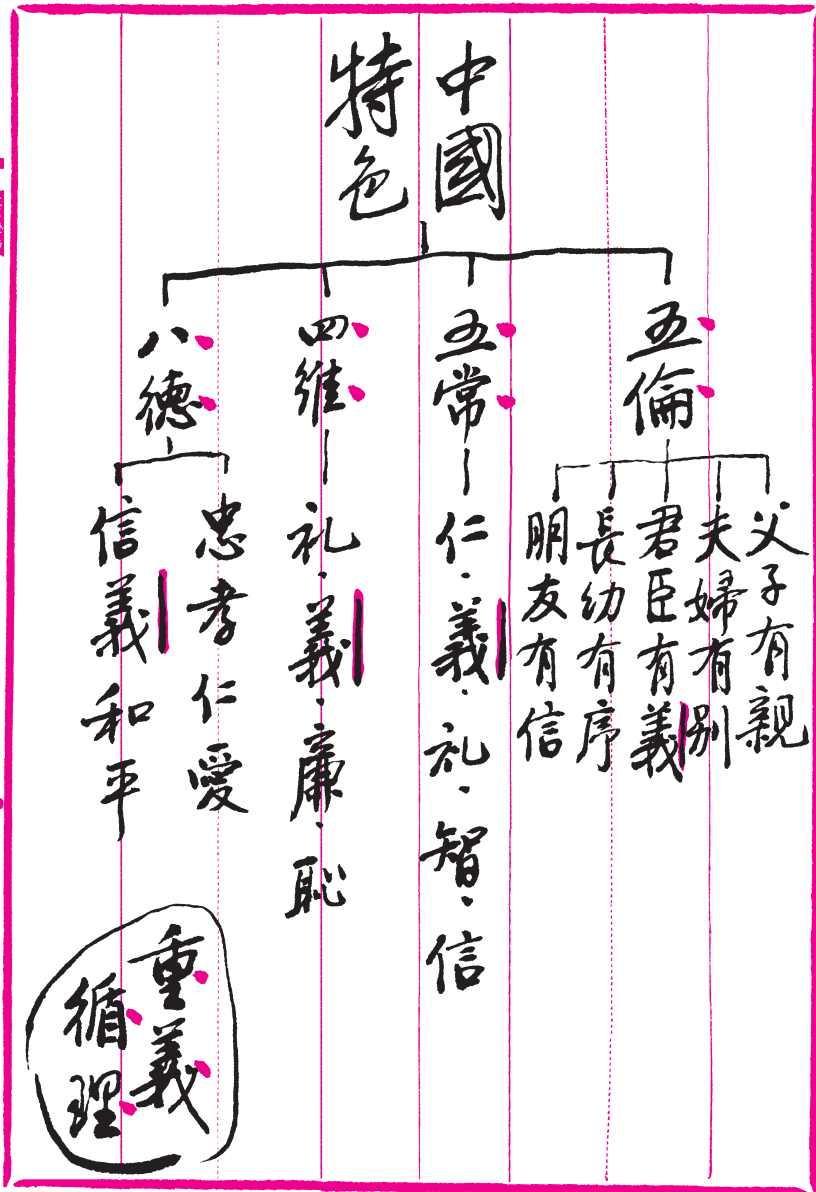 中國
特色
五倫
父子有親
夫婦有别
君臣有義
長幼有序
朋友有信
五常
仁·義·礼·智·信
四維
礼·義·廉·恥
八德
忠孝仁愛
信義和平
重義
循理